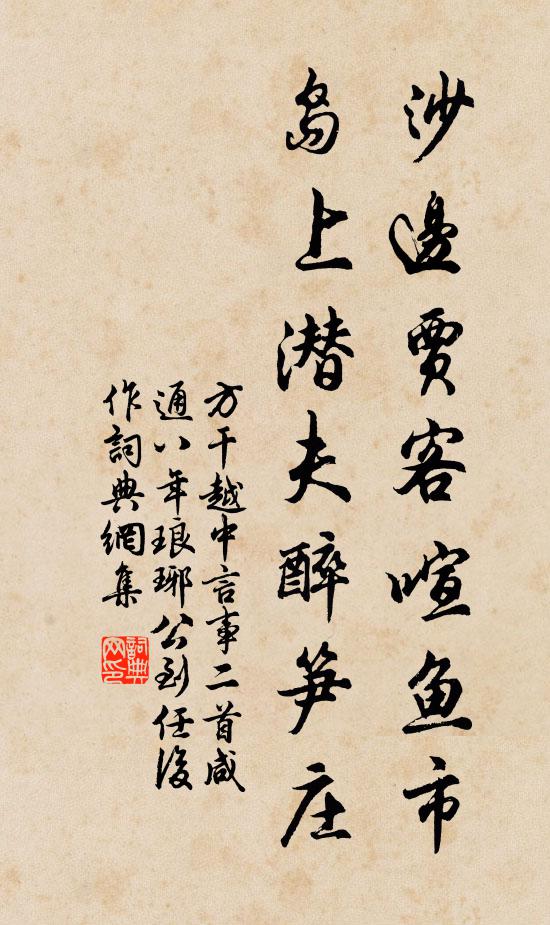 沙邊賈客喧鱼市
島上潜夫醉笋庄
方干越中言事二首咸
通八年琅琊公到任後
作詞典網集
詞典
网印